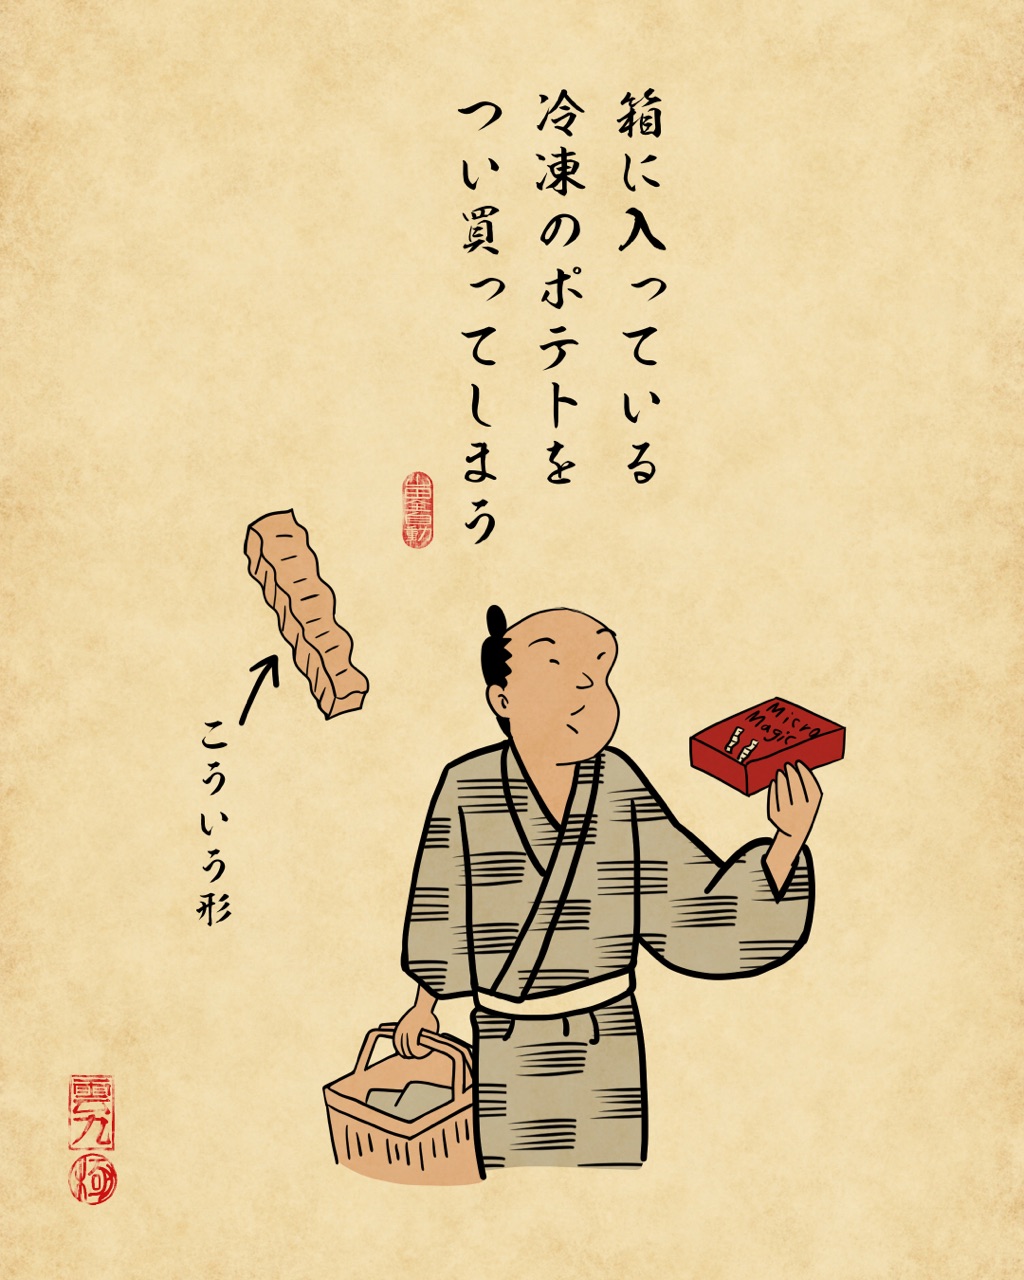 箱に入っている
冷凍のポテトを
つい買ってしまう
こういう形
Micro
Magic